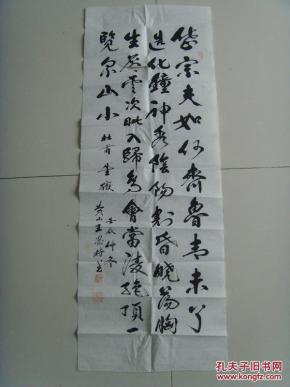 岱宗夫如何齊魯青未了
造化鐘神秀陰陽割昏曉蕩胸
生層雲决眦入歸鳥會當凌絶頂一
覽众山小 杜甫 望嶽
仲冬